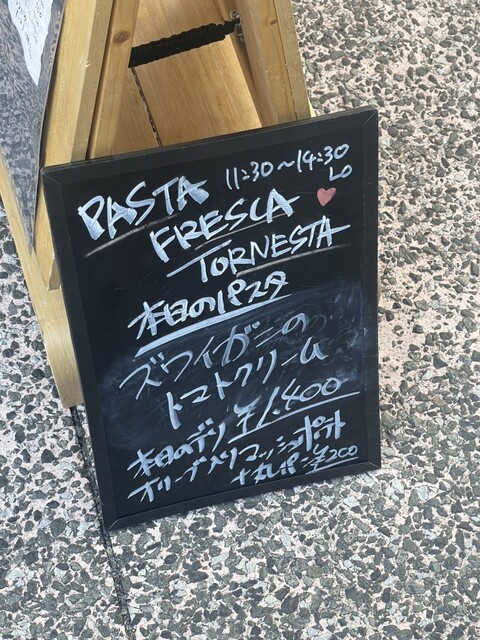 PASTA 11:30~14:30
LO
FRESCA
TORNESTA
本日のパスタ
ズワイガニの
トマトクリーム
¥1.400
本日のデリ
オリーブ入りマッシュポテト
+丸パン ¥200